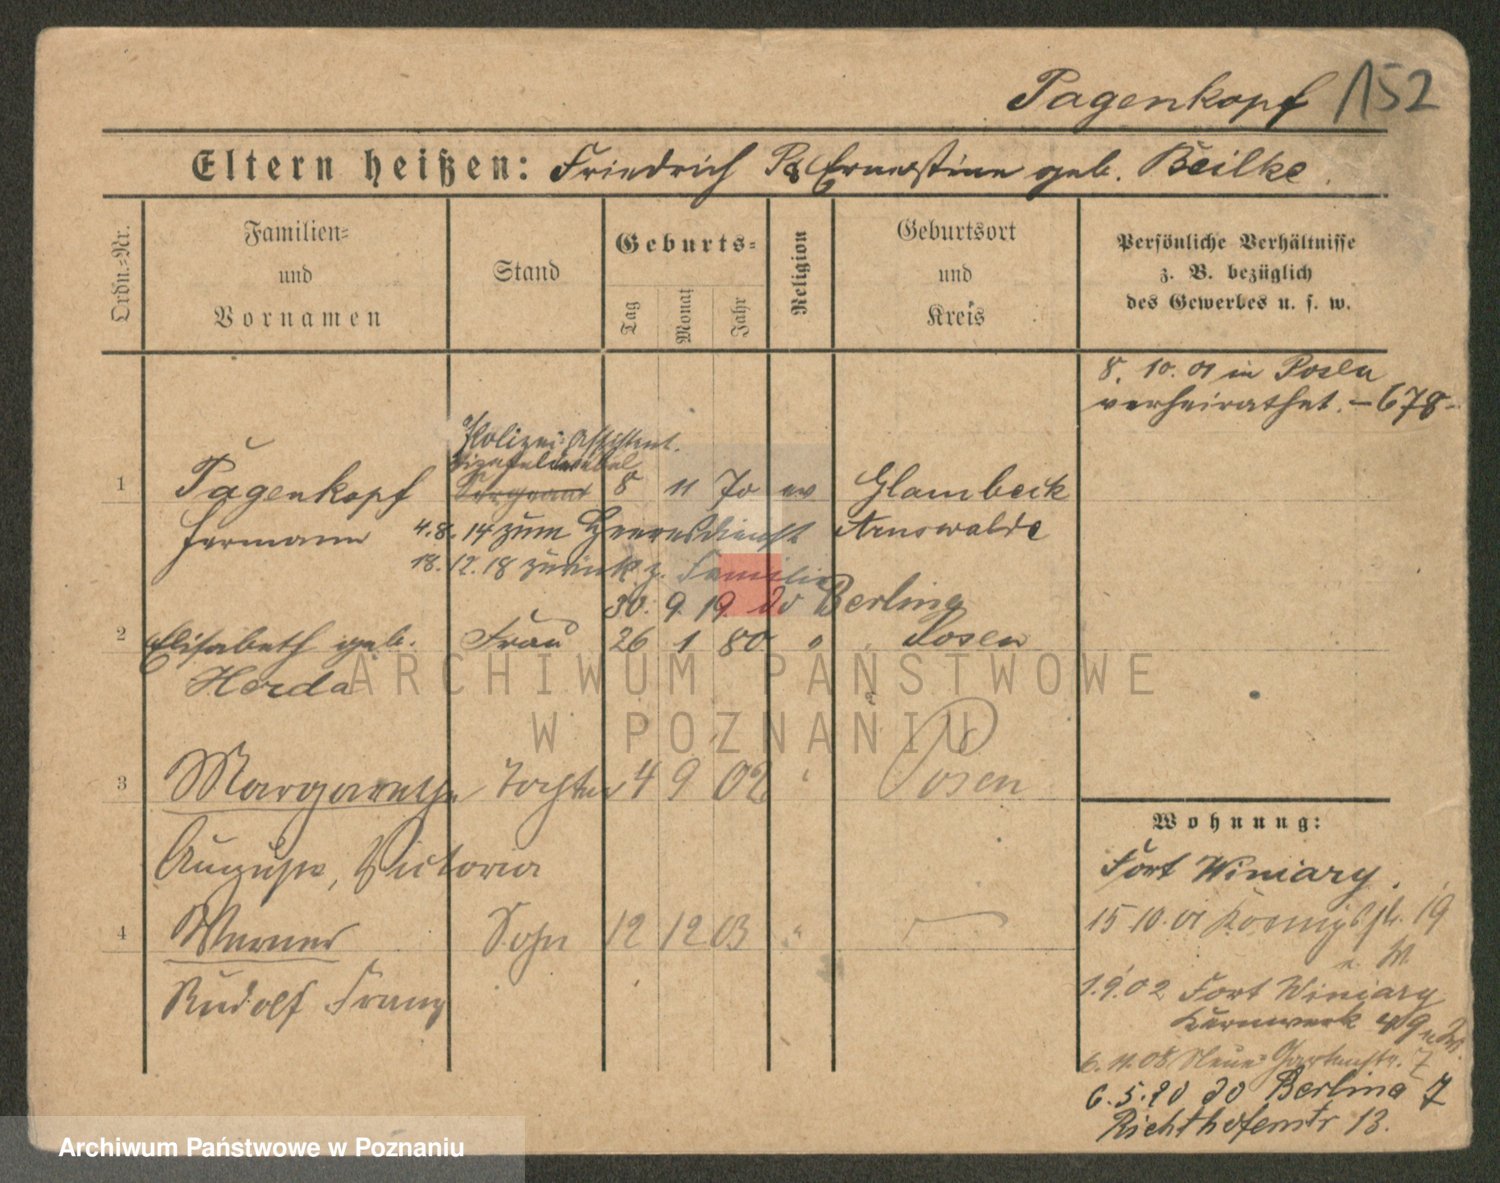 Pagenkopf 152
Eltern heißen: Friedrich P. & Ernestine geb. Beilke.
Ordn.-Nr.
Familien-
und
Vornamen
Stand
Geburts-
Tag
Monat
Jahr
Religion
Geburtsort
und
Kreis
Persönliche Verhältnisse
z. B. bezüglich
des Gewerbes u. s. w.
8. 10. 01 in Posen
verheirathet. – 678 –
Polizei-Assistent.
Vizefeldwebel
1 Pagenkopf Sergeant 8 11 70 ev Glambeck
Hermann 4.8.14 zum Heeresdienst Arnswalde
18.12.18 zurück z. Familie
30. 9. 19. do Berlin
2 Elisabeth geb. Frau 26 1 80 " Posen
Herda
3 Margarethe Tochter 4 9 02 " Posen
Auguste, Victoria
4 Werner Sohn 12 12 03 "
Rudolf Franz
Wohnung:
Fort Winiary.
15 10. 01 Königspl. 19
1.9.02 Fort Winiary
Kernwerk
6. 11. 08 Neue Gartenstr. 7
6. 5. 20 do Berlin
Richthofenstr 13.
ARCHIWUM PAŃSTWOWE
W POZNANIU
Archiwum Państwowe w Poznaniu